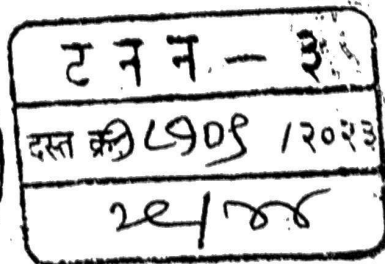 ट न न - ३
दस्त क्र. ८७०९ /२०२३
२९/४४